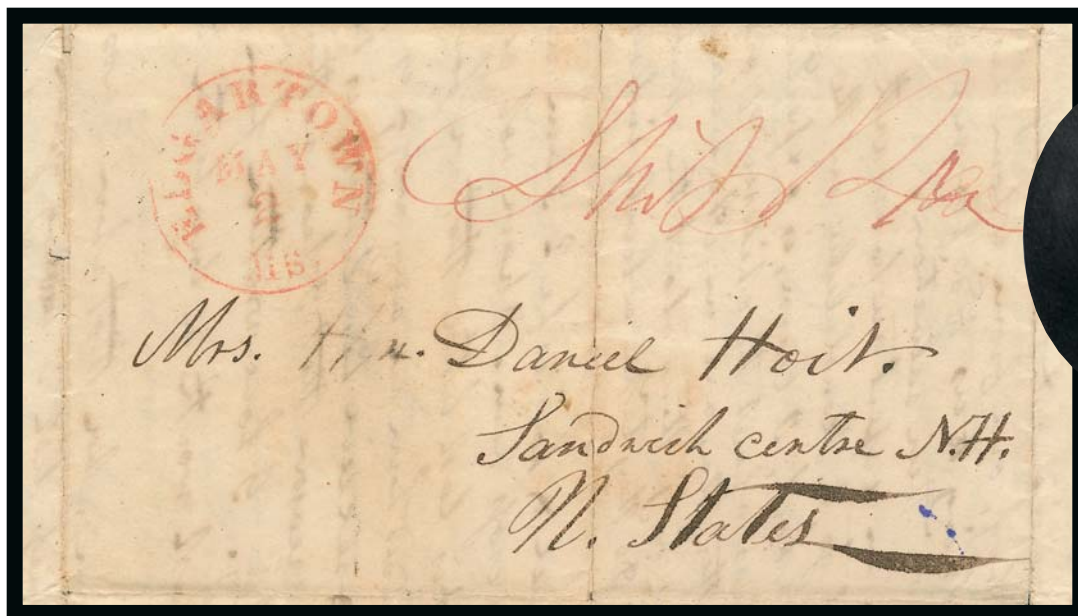 EDGARTOWN
MAY
2
MS.
Ship
Mrs. Hon. Daniel Hoit.
Sandwich centre N.H.
U. States